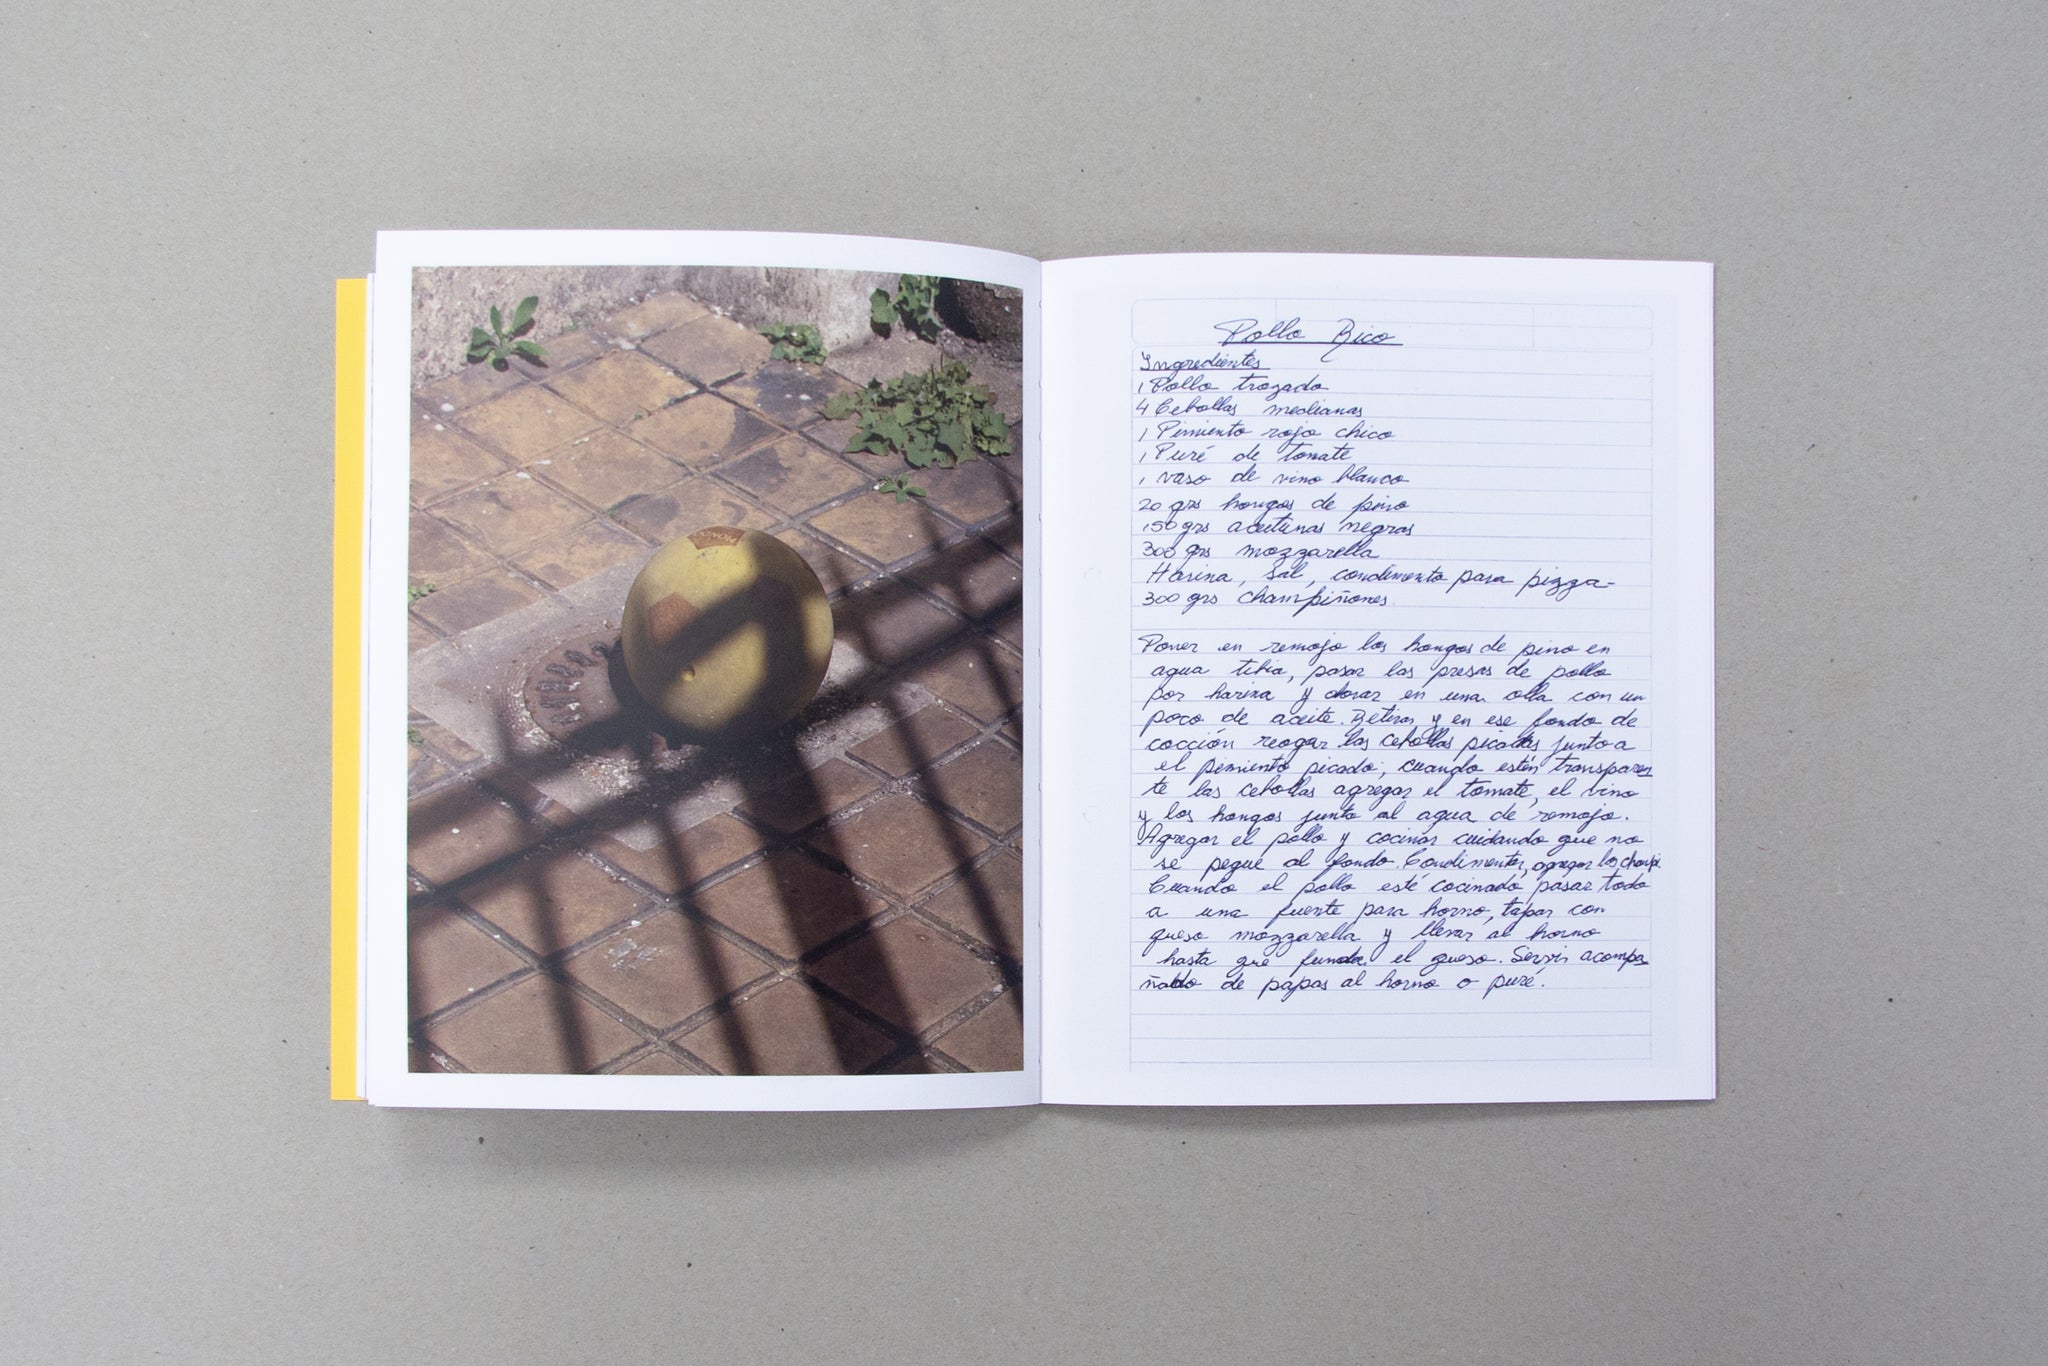 MONDO
Pollo Rico
Ingredientes
1 Pollo trozado
4 Cebollas medianas
1 Pimiento rojo chico
1 Puré de tomate
1 vaso de vino blanco
20 grs hongos de pino
150 grs aceitunas negras
300 grs mozzarella
Harina, sal, condimento para pizza-
300 grs champiñones.
Poner en remojo los hongos de pino en
agua tibia, pasar las presas de pollo
por harina y dorar en una olla con un
poco de aceite. Retirar y en ese fondo de
cocción reogar las cebollas picadas junto a
el pimiento picado, cuando estén transparen
te las cebollas agregar el tomate, el vino
y los hongos junto al agua de remojo.
Agregar el pollo y cocinar cuidando que no
se pegue al fondo. Condimentar, agregar los champi.
Cuando el pollo esté cocinado pasar todo
a una fuente para horno, tapar con
queso mozzarella y llevar al horno
hasta que funda el queso. Servir acompa
ñado de papas al horno o puré.